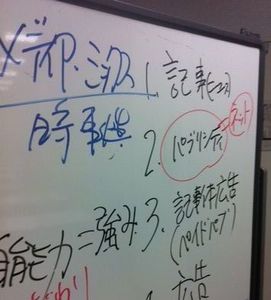 メディア・ミックス
1. 記事(ニュース)
2. パブリシティ
ネット
能力=強み
3. 記事体広告
(ペイドパブ)
広告